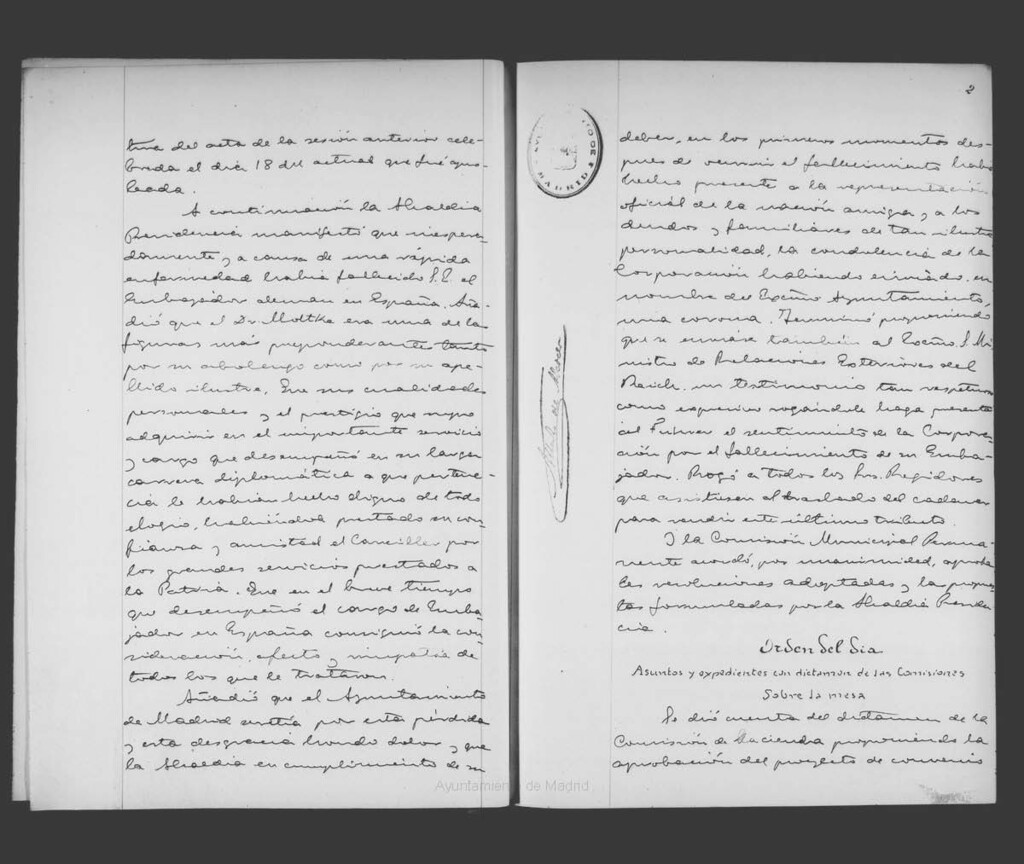 tura del acta de la sesión anterior cele-
brada el día 18 del actual que fué apro-
bada.
A continuación la Alcaldía
Presidencia manifestó que inespera-
damente y a causa de una rápida
enfermedad había fallecido S.E. el
Embajador aleman en España. Aña-
dió que el Dr. Moltke era una de las
figuras más preponderantes tanto
por su abolengo como por su ape-
llido ilustre. Que sus cualidades
personales y el prestigio que supo
adquirir en el importante servicio
y cargo que desempeñó en su larga
carrera diplomática a que pertene-
cía le habían hecho digno de todo
elogio, habiéndole prestado su con-
fianza y amistad el Canciller por
los grandes servicios prestados a
la Patria. Que en el breve tiempo
que desempeñó el cargo de Emba-
jador en España consiguió la con-
sideración, afecto y simpatía de
todos los que le trataron.
Añadió que el Ayuntamiento
de Madrid sentía por esta pérdida
y esta desgracia hondo dolor y que
la Alcaldía en cumplimiento de su
2
MADRID
deber, en los primeros momentos des-
pues de ocurrir el fallecimiento había
hecho presente a la representación
oficial de la nación amiga y a los
deudos y familiares de tan ilustre
personalidad, la condolencia de la
Corporación habiendo enviado, en
nombre del Excmo Ayuntamiento,
una corona. Terminó proponiendo
que se enviase también al Excmo. S. Mi-
nistro de Relaciones Exteriores del
Reich, un testimonio tan respetuoso
como expresivo rogándole haga presente
al Führer el sentimiento de la Corpora-
ción por el fallecimiento de su Emba-
jador. Rogó a todos los Srs. Regidores
que asistiesen al traslado del cadaver
para rendir este último tributo.
Y la Comisión Municipal Perma-
nente acordó, por unanimidad, aprobar
las resoluciones adoptadas y las propues-
tas formuladas por la Alcaldía Presiden-
cia.
Orden del día
Asuntos y expedientes con dictamen de las Comisiones
Sobre la mesa
Se dió cuenta del dictamen de la
Comisión de Hacienda proponiendo la
aprobación del proyecto de convenio
Ayuntamiento de Madrid